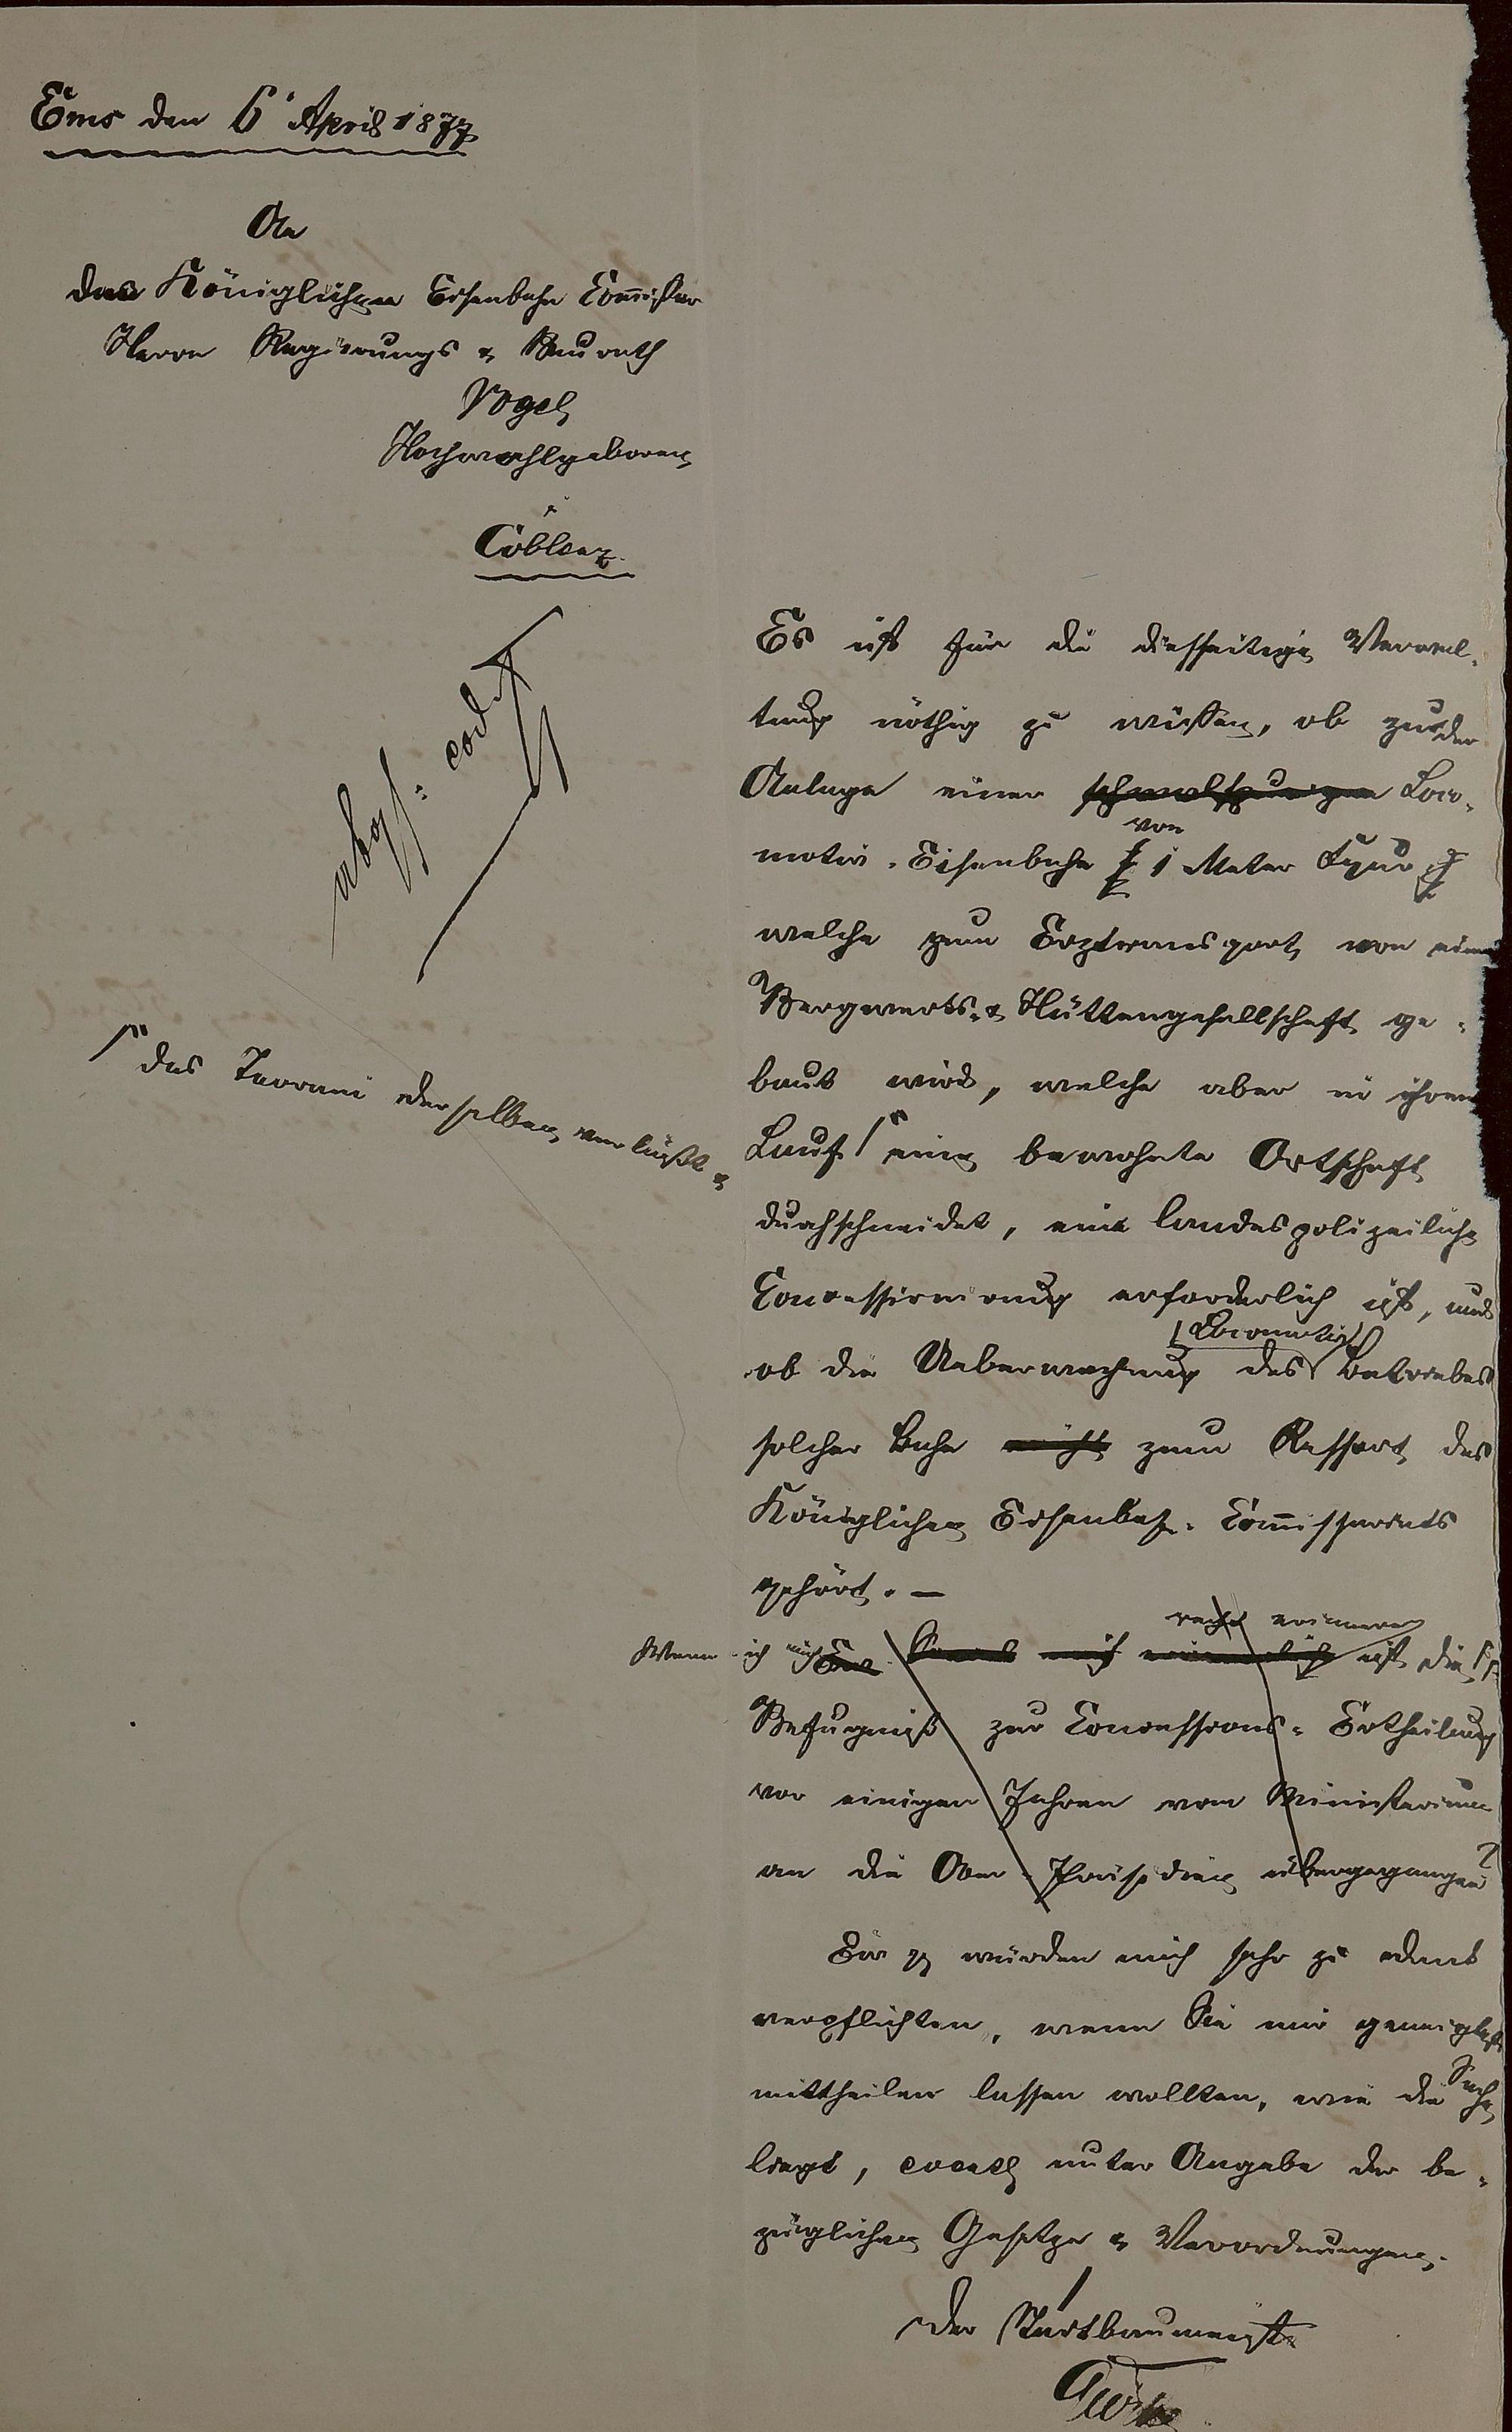 Ems den 6' April 1877
An
den Königlichen Eisenbahn Commissar
Herrn Regierungs & Baurath
Vogel
Hochwohlgeboren
Coblenz
abges. eod.
Es ist für die diesseitige Verwal-
tung nöthig zu wissen, ob zur der
Anlage einer schmalspurigen Loco-
von
motiv-Eisenbahn 1 Meter Spur
welche zum Erztransport von einer
Bergwerks- & Hüttengesellschaft ge-
baut wird, welche aber in ihrem
das Terrain derselben verläßt &
Lauf eine bewohnte Ortschaft
durchschneidet, eine landespolizeiliche
Concessionirung erforderlich ist, und
Locomotiv
ob die Ueberwachung des Betriebes
solcher Bahn nicht zum Ressort des
Königlichen Eisenbahn-Commissariats
gehört. —
recht erinnere
Wenn ich mich Soviel mich erinnerlich ist die
Befugniß zur Concessions-Ertheilung
vor einigen Jahren vom Ministerium
an die Ober-Präsidien übergegangen?
Ew würden mich sehr zu Dank
verpflichten, wenn Sie mir geneigtest
mittheilen lassen wollten, wie die Sache
liegt, event. unter Angabe der be-
züglichen Gesetze & Verordnungen.
Der Stadtbaumeister